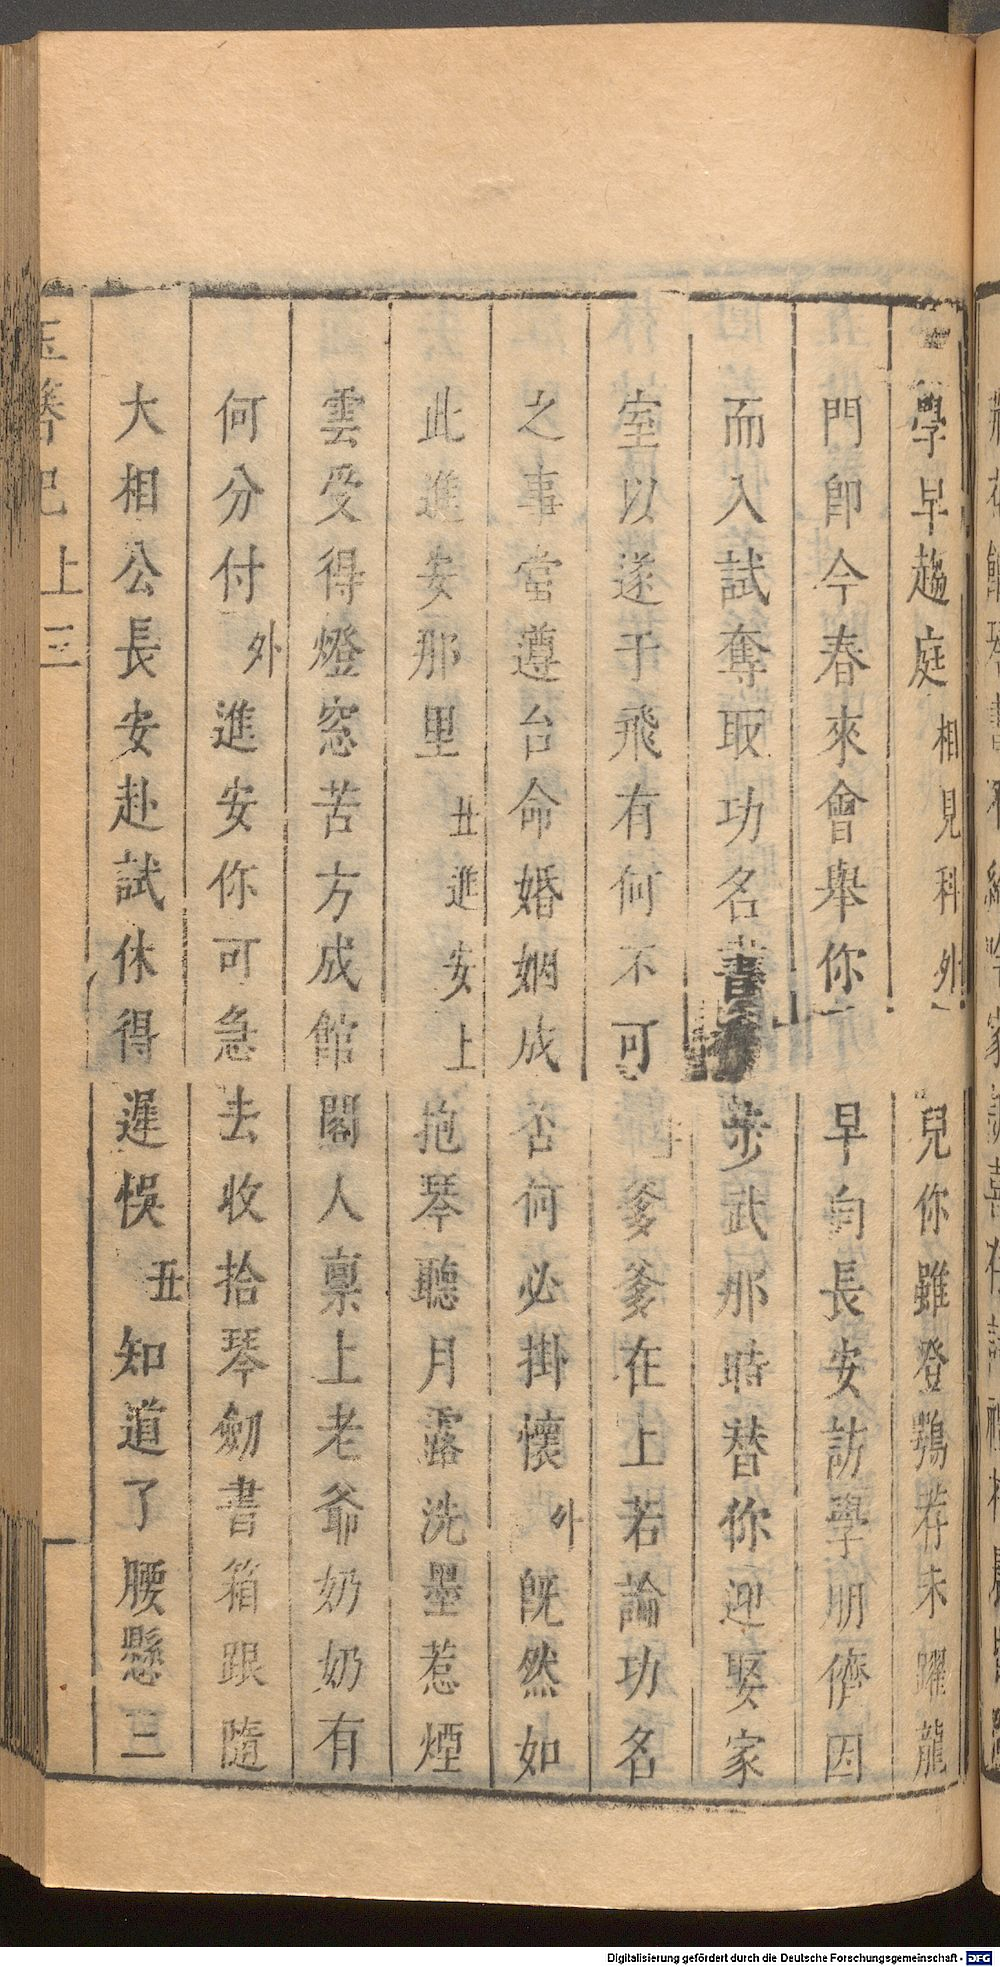 學早趨庭相見科外兒你雖登鶚荐未躍龍
門卽今春來會舉你早向長安訪學朋儕因
而入試奪取功名書步武那時替你迎娶家
室以遂于飛有何不可爹爹在上若論功名
之事當遵台命婚姻成否何必掛懷外旣然如
此進安那里丑進安上抱琴聽月露洗墨惹煙
雲受得燈窓苦方成館閣人稟上老爺奶奶有
何分付外進安你可急去收拾琴劒書箱跟隨
大相公長安赴試休得遲悞丑知道了腰懸三
玉簪記上三
Digitalisierung gefördert durch die Deutsche Forschungsgemeinschaft - DFG